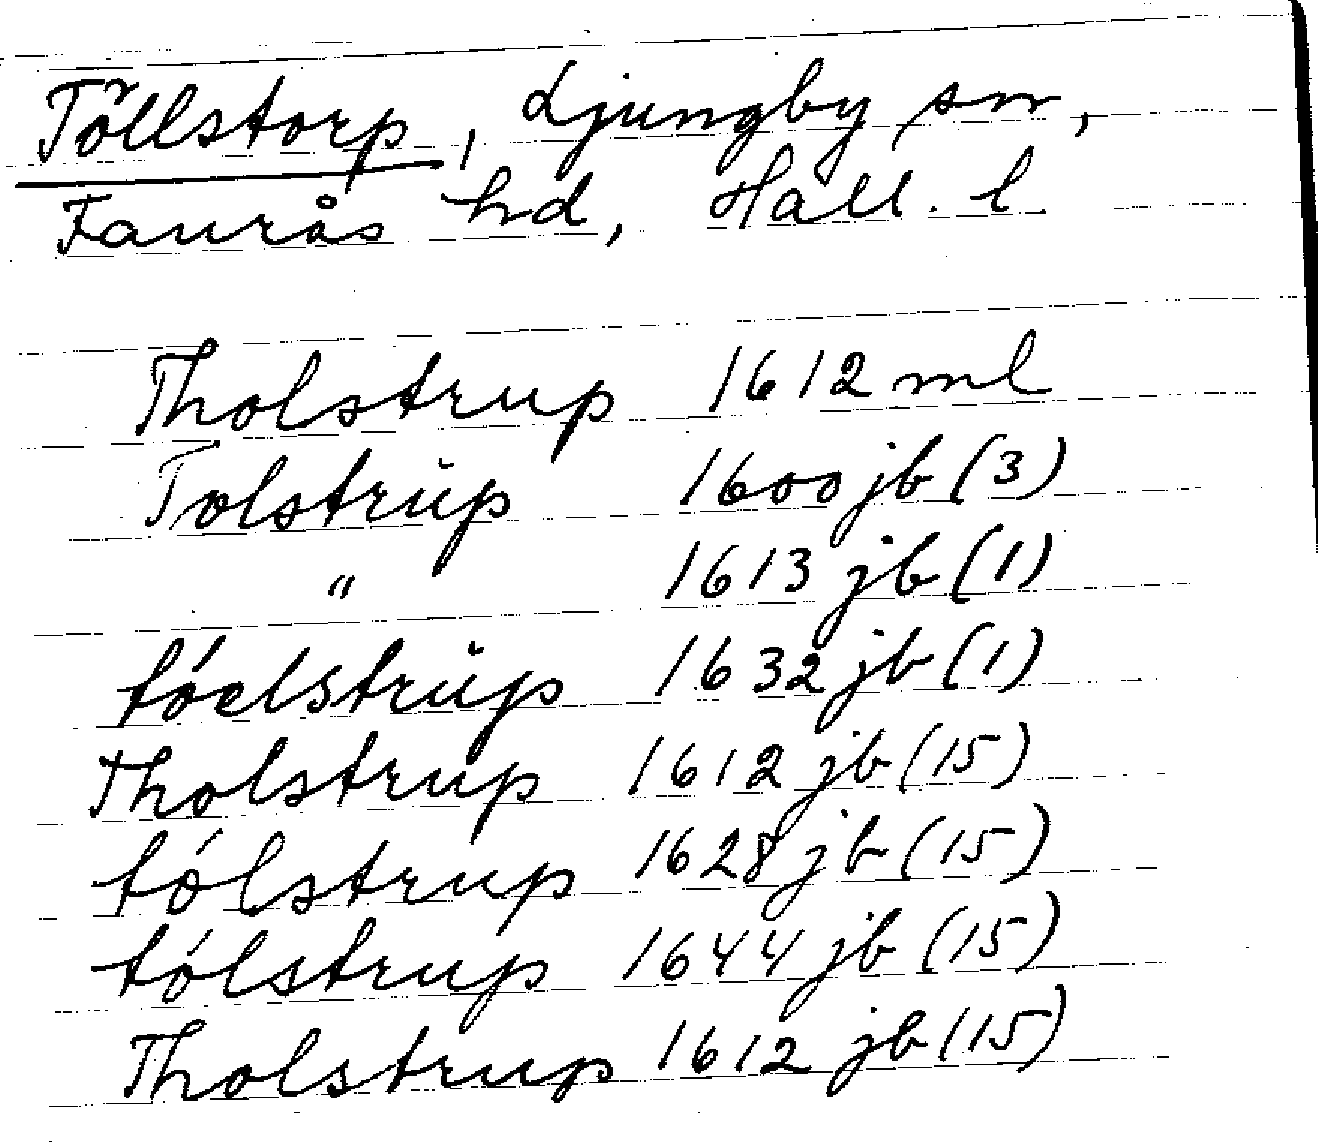 Töllstorp, Ljungby sn,
Faurås hd, Hall. l.
Tholstrup 1612 ml
Tolstrŭp 1600 jb (3)
" 1613 jb (1)
tóelstrŭp 1632 jb (1)
Tholstrup 1612 jb (15)
tólstrup 1628 jb (15)
tólstrup 1644 jb (15)
Tholstrup 1612 jb (15)